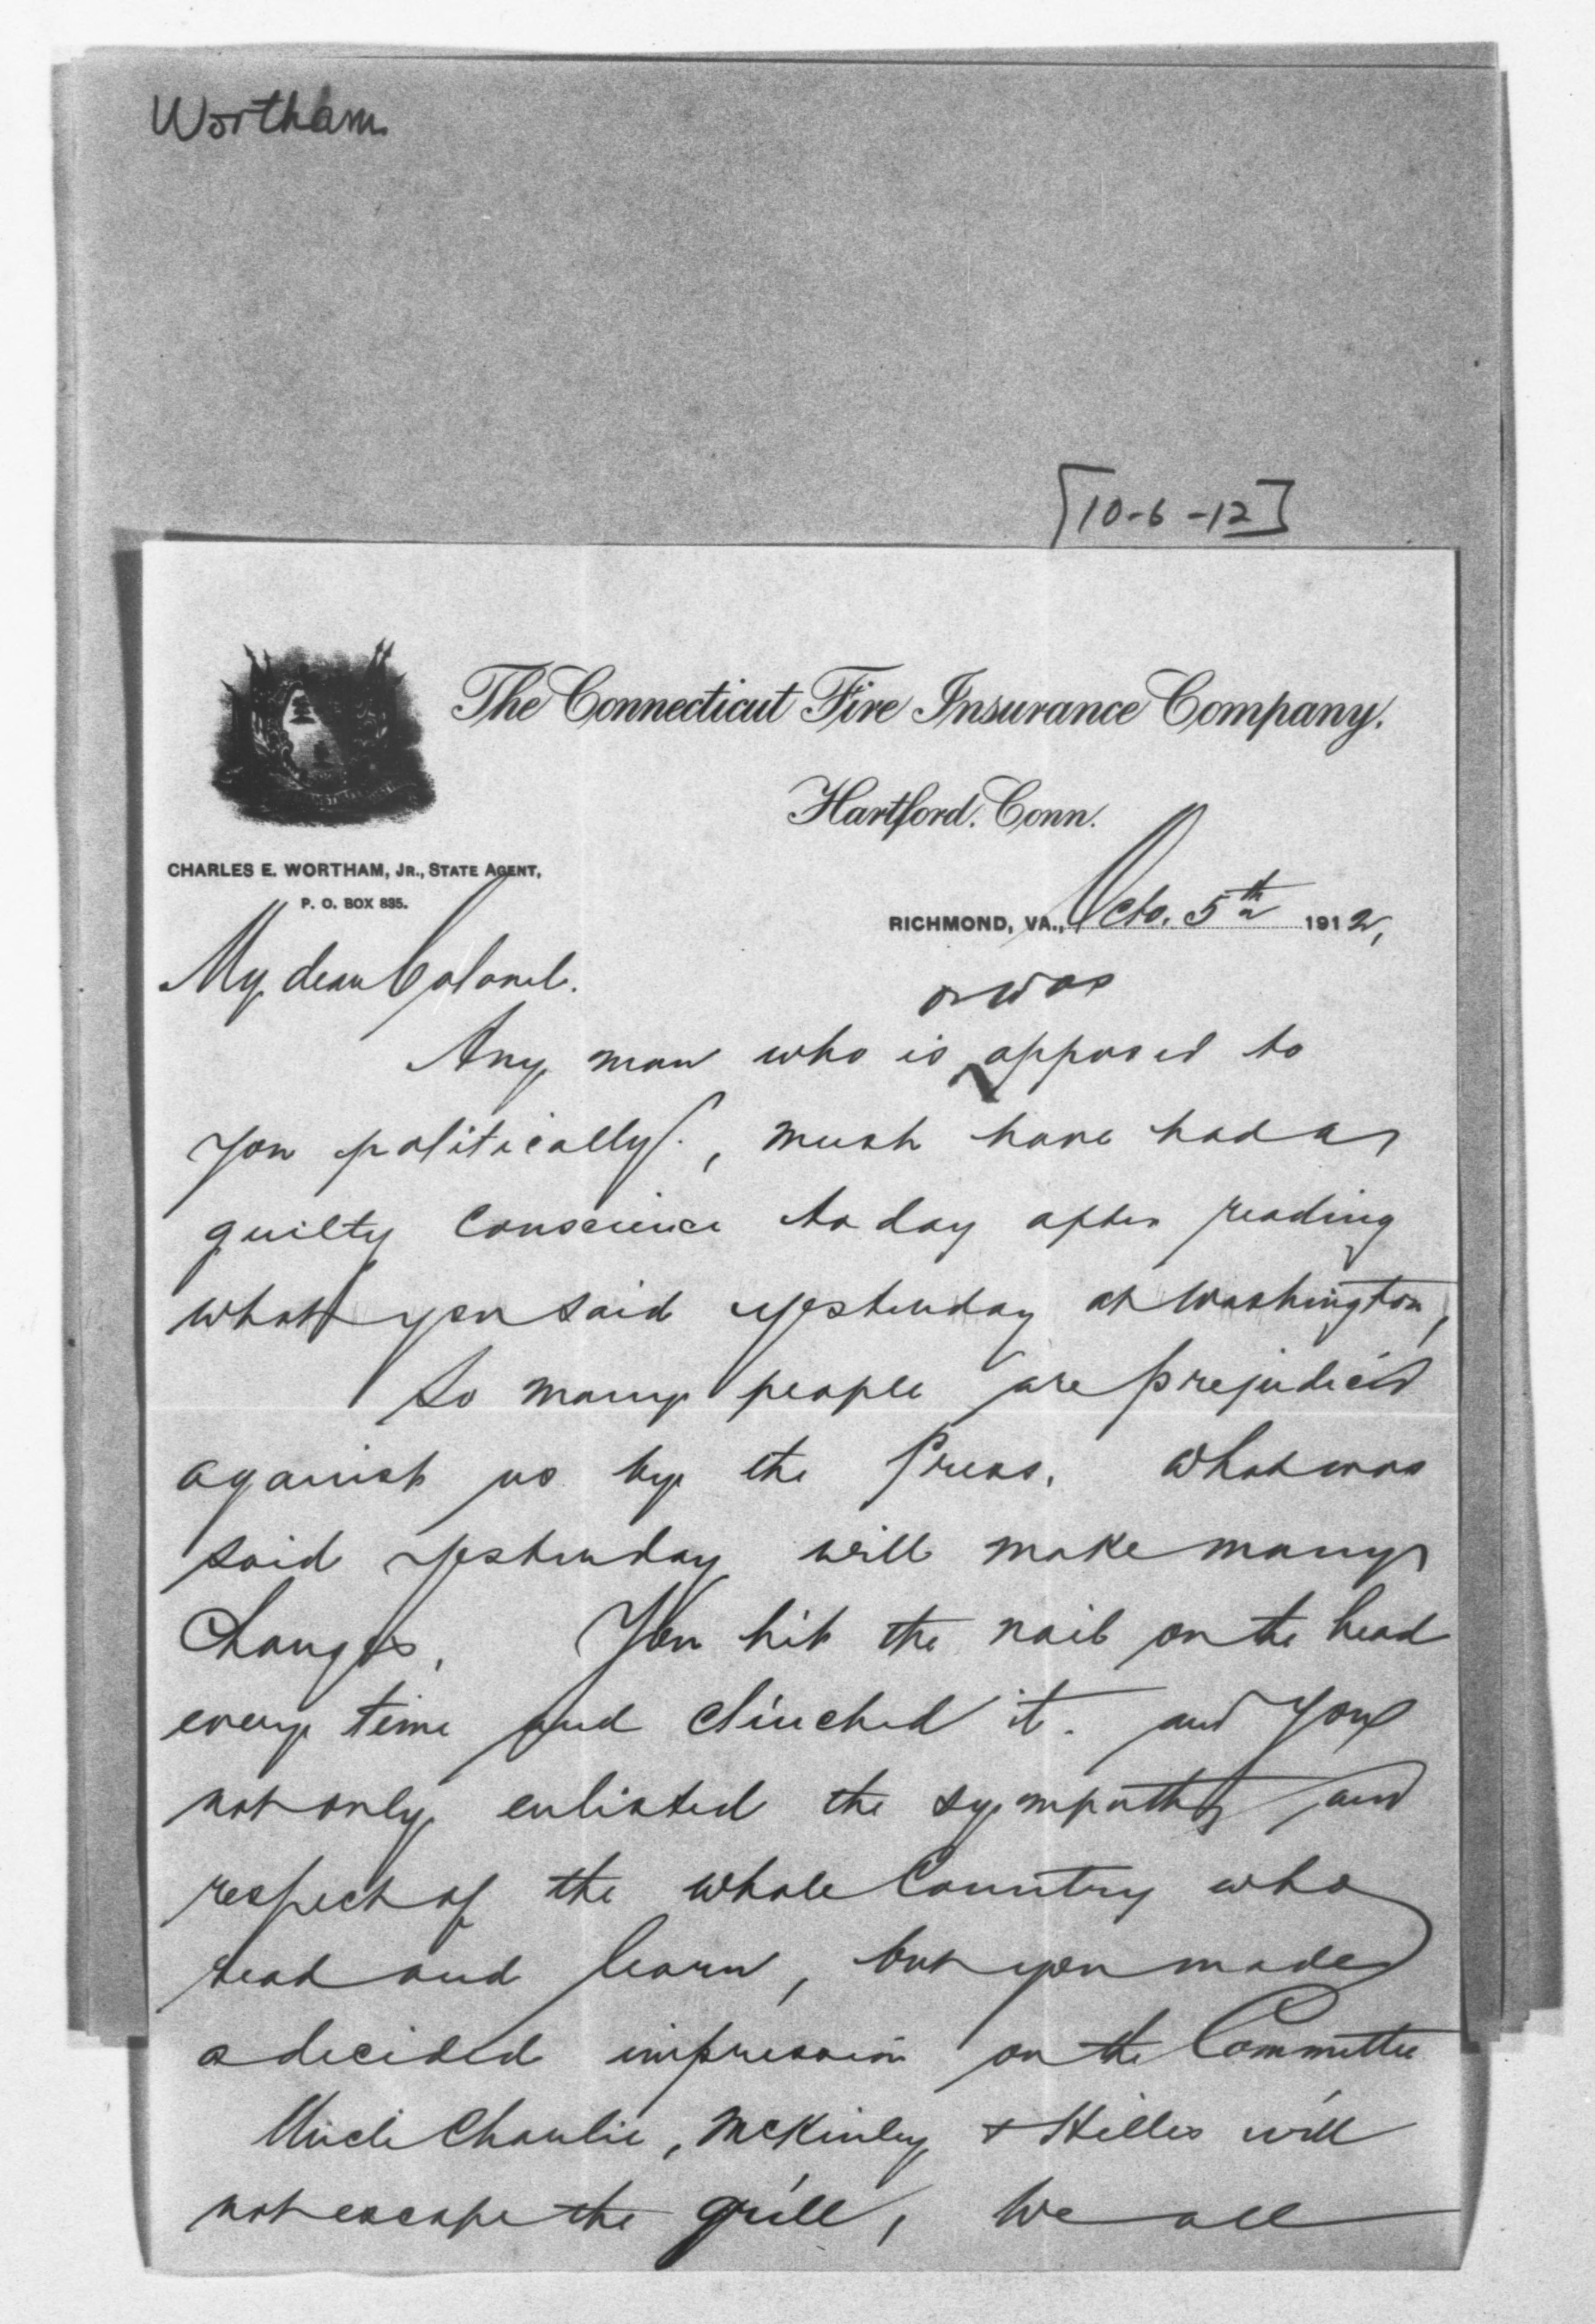 Wortham
[10-6-12]
The Connecticut Fire Insurance Company.
Hartford. Conn.
CHARLES E. WORTHAM, JR., STATE AGENT,
P. O. BOX 885.
RICHMOND, VA., Octo. 5th 1912,
My dear Colonel.
or was
Any man who is opposed to
you politically, must have had a
guilty conscience to day after reading
what you said yesterday at Washington,
So many people are prejudiced
against us by the Press. What was
said yesterday will make many
Changes. You hit the nail on the head
every time and clinched it. and you
not only enlisted the sympathy and
respect of the whole Country who
read and learn, but you made
a decided impression on the Committee
Uncle Charlie, McKinley & Hilles will
not escape the grill, We all